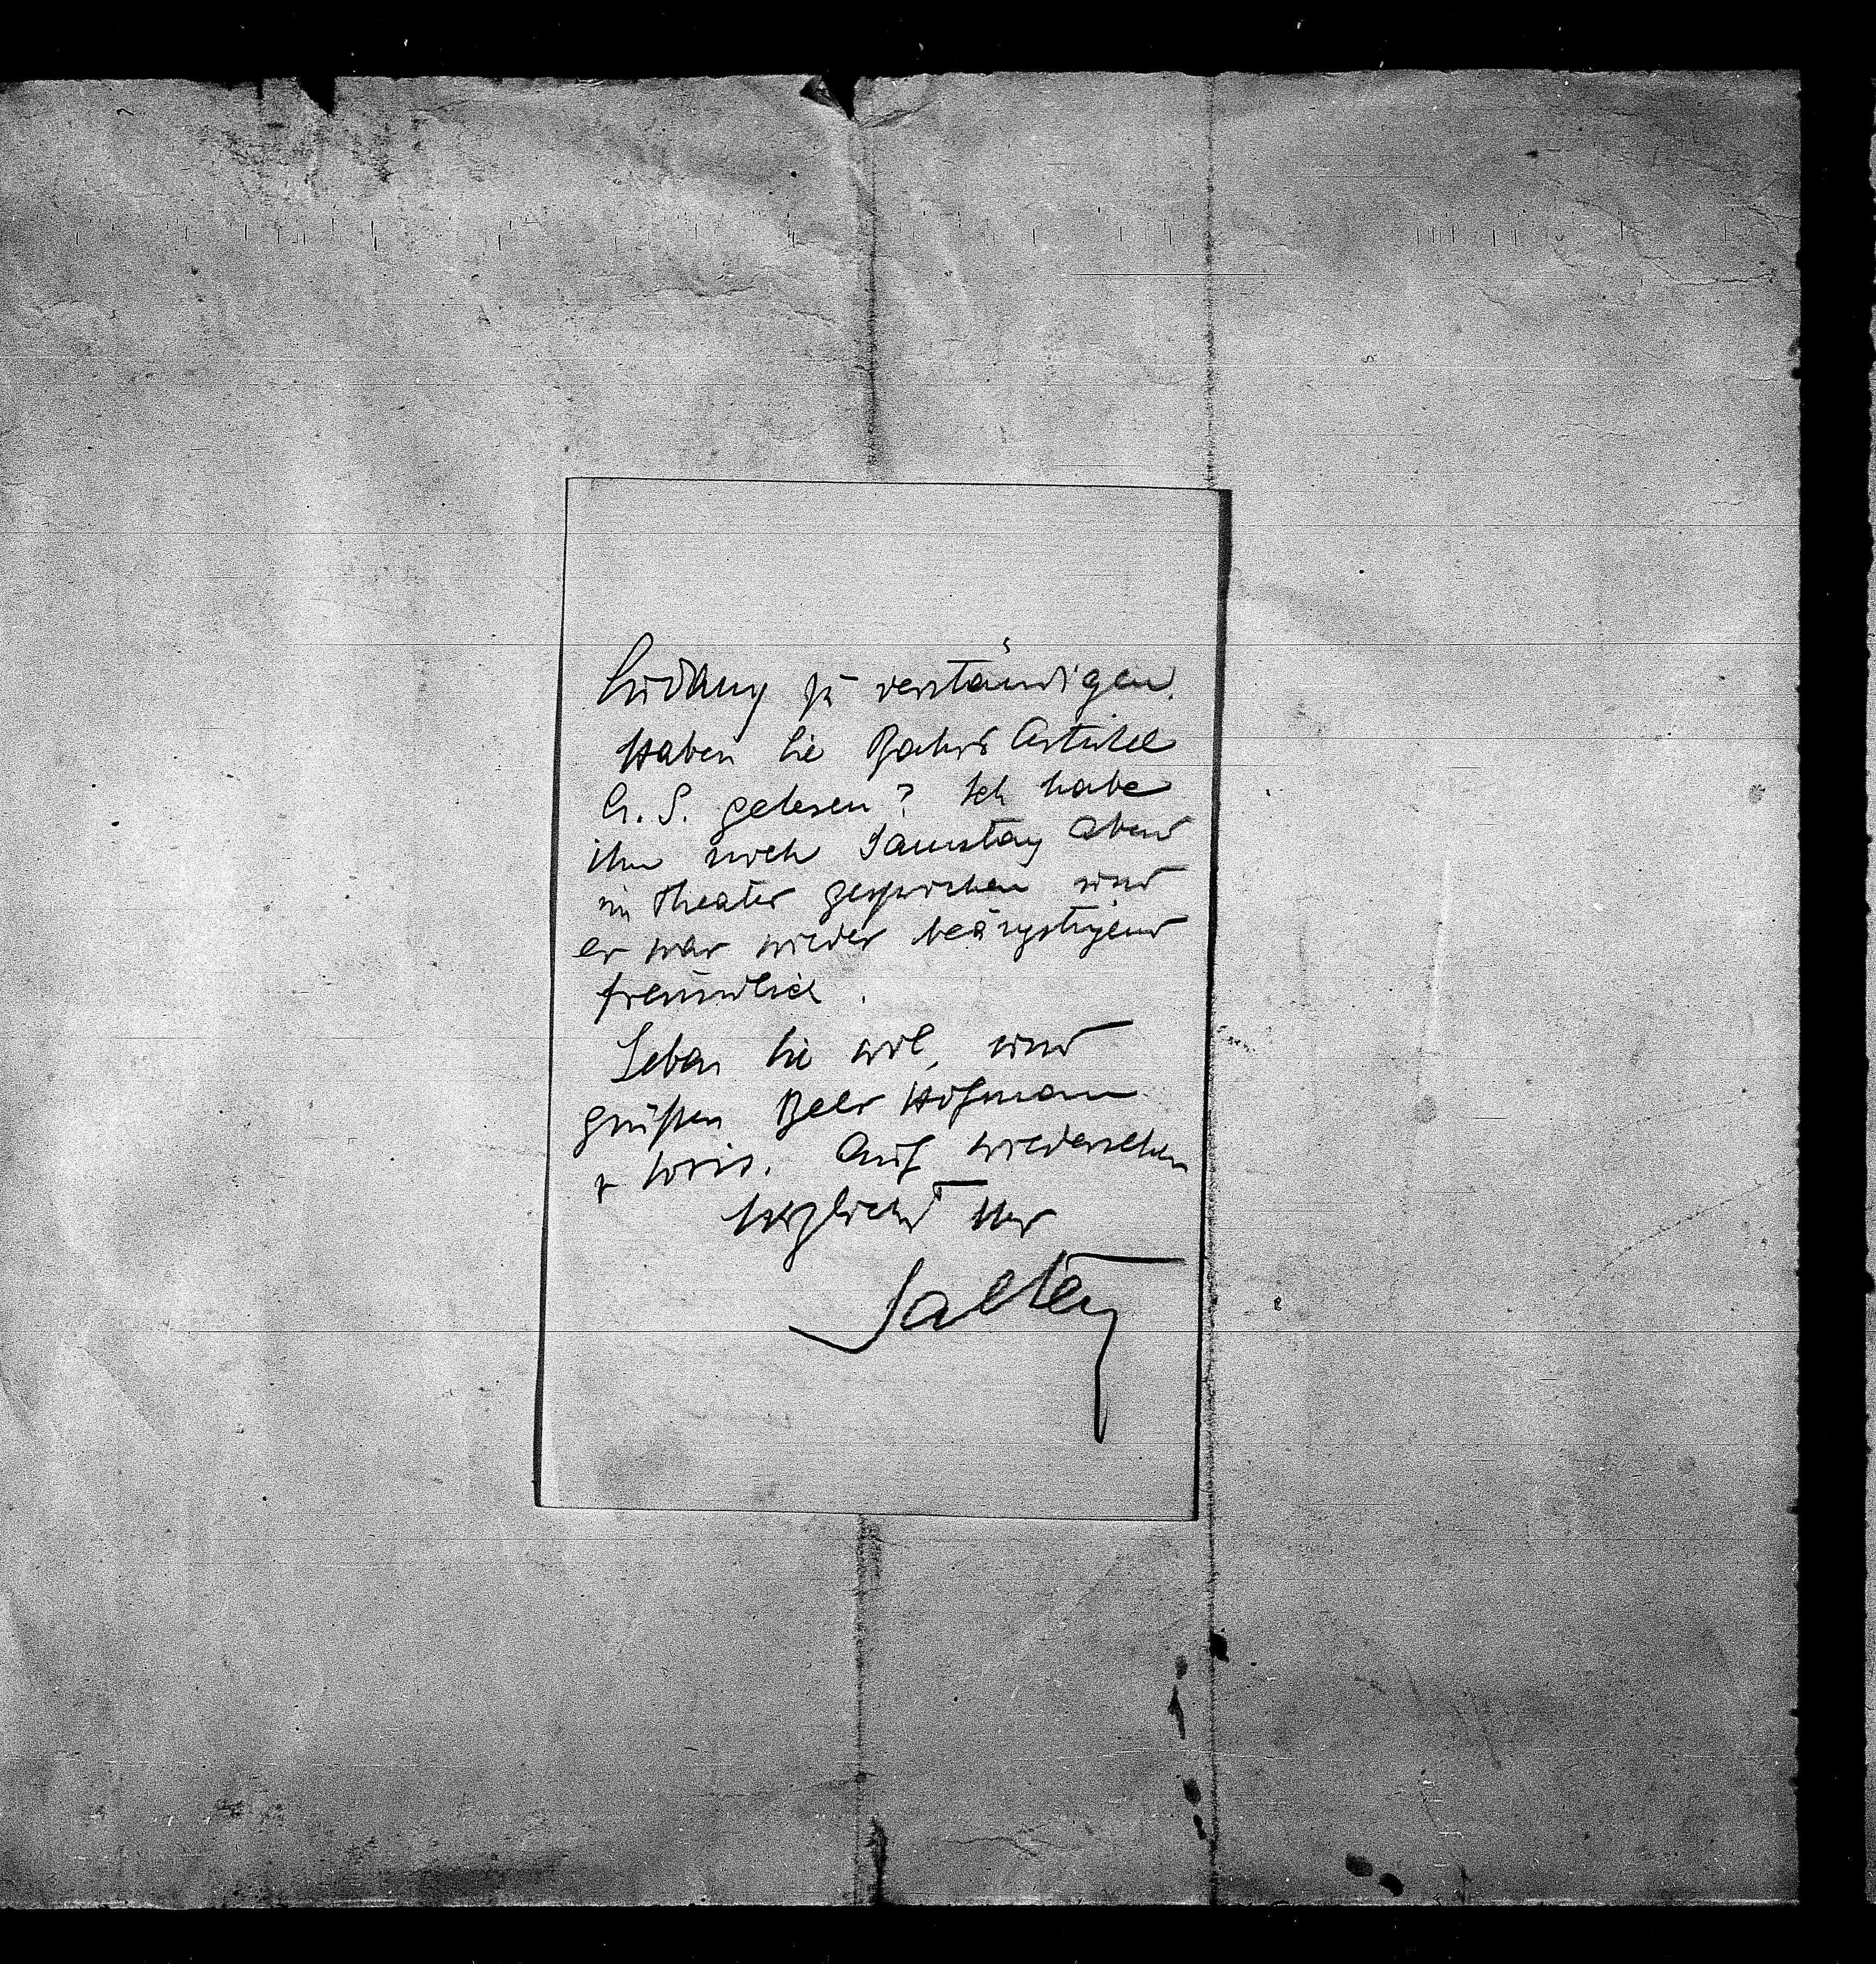 zu verständigen.
Haben Sie Bahrs Artikel
S. gelesen? Ich habe
ihn noch Samstag Abend
im Theater gesprochen und
er war wieder beängstigend
freundlich.
Leben Sie wol, und
grüßen Beer Hofmann
& Loris. Auf wiedersehen
herzlichst Ihr
Salten